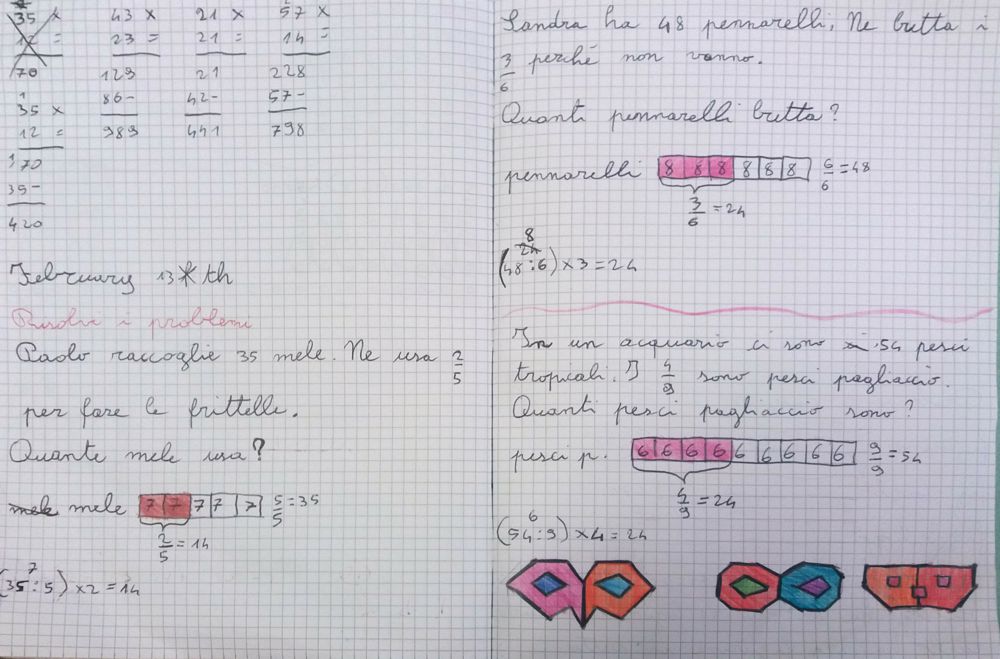 35 × 43 × 21 × 57 ×
12 = 23 = 21 = 14 =
70 129 21 228
1 86- 42- 57-
35 × 989 441 798
12 =
70
35-
420
February 13th
Risolvi i problemi
Paolo raccoglie 35 mele. Ne usa 2/5
per fare le frittelle.
Quante mele usa?
mele mele 7 7 7 7 7 5/5 = 35
2/5 = 14
7
(35:5) × 2 = 14
Sandra ha 48 pennarelli, Ne butta i
3/6 perché non vanno.
Quanti pennarelli butta?
pennarelli 8 8 8 8 8 8 6/6 = 48
3/6 = 24
8
24
(48:6) × 3 = 24
In un acquario ci sono 54 pesci
tropicali. I 4/9 sono pesci pagliaccio.
Quanti pesci pagliaccio sono?
pesci p. 6 6 6 6 6 6 6 6 6 9/9 = 54
4/9 = 24
6
(54:9) × 4 = 24